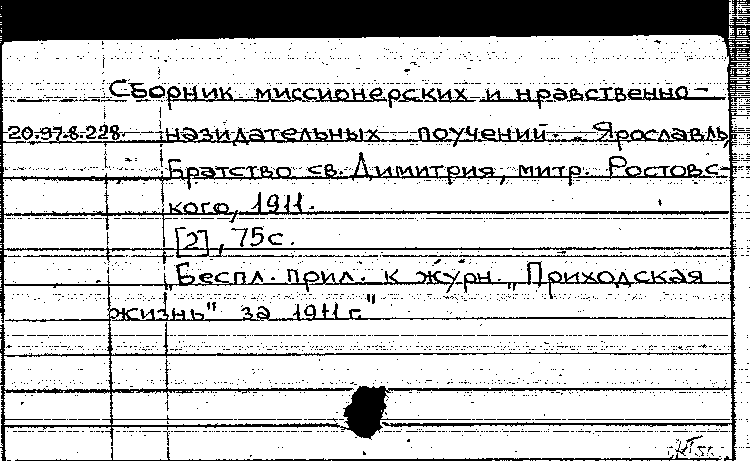 Сборник миссионерских и нравственно-
20.97.8.228. назидательных поучений. Ярославль,
Братство св. Димитрия, митр. Ростовс-
кого, 1911.
[2], 75с.
„Беспл. прил. к журн. „Приходская
жизнь" за 1911 г."